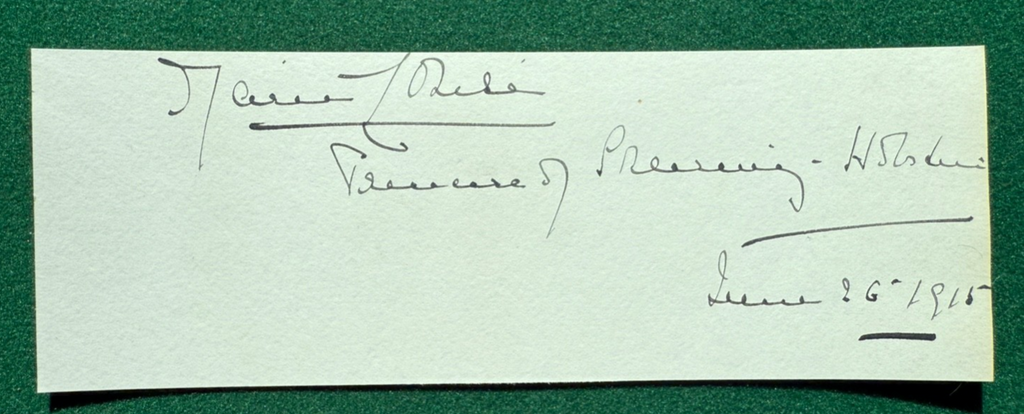 Marie Louise
Princess of Schleswig-Holstein
June 26th 1915